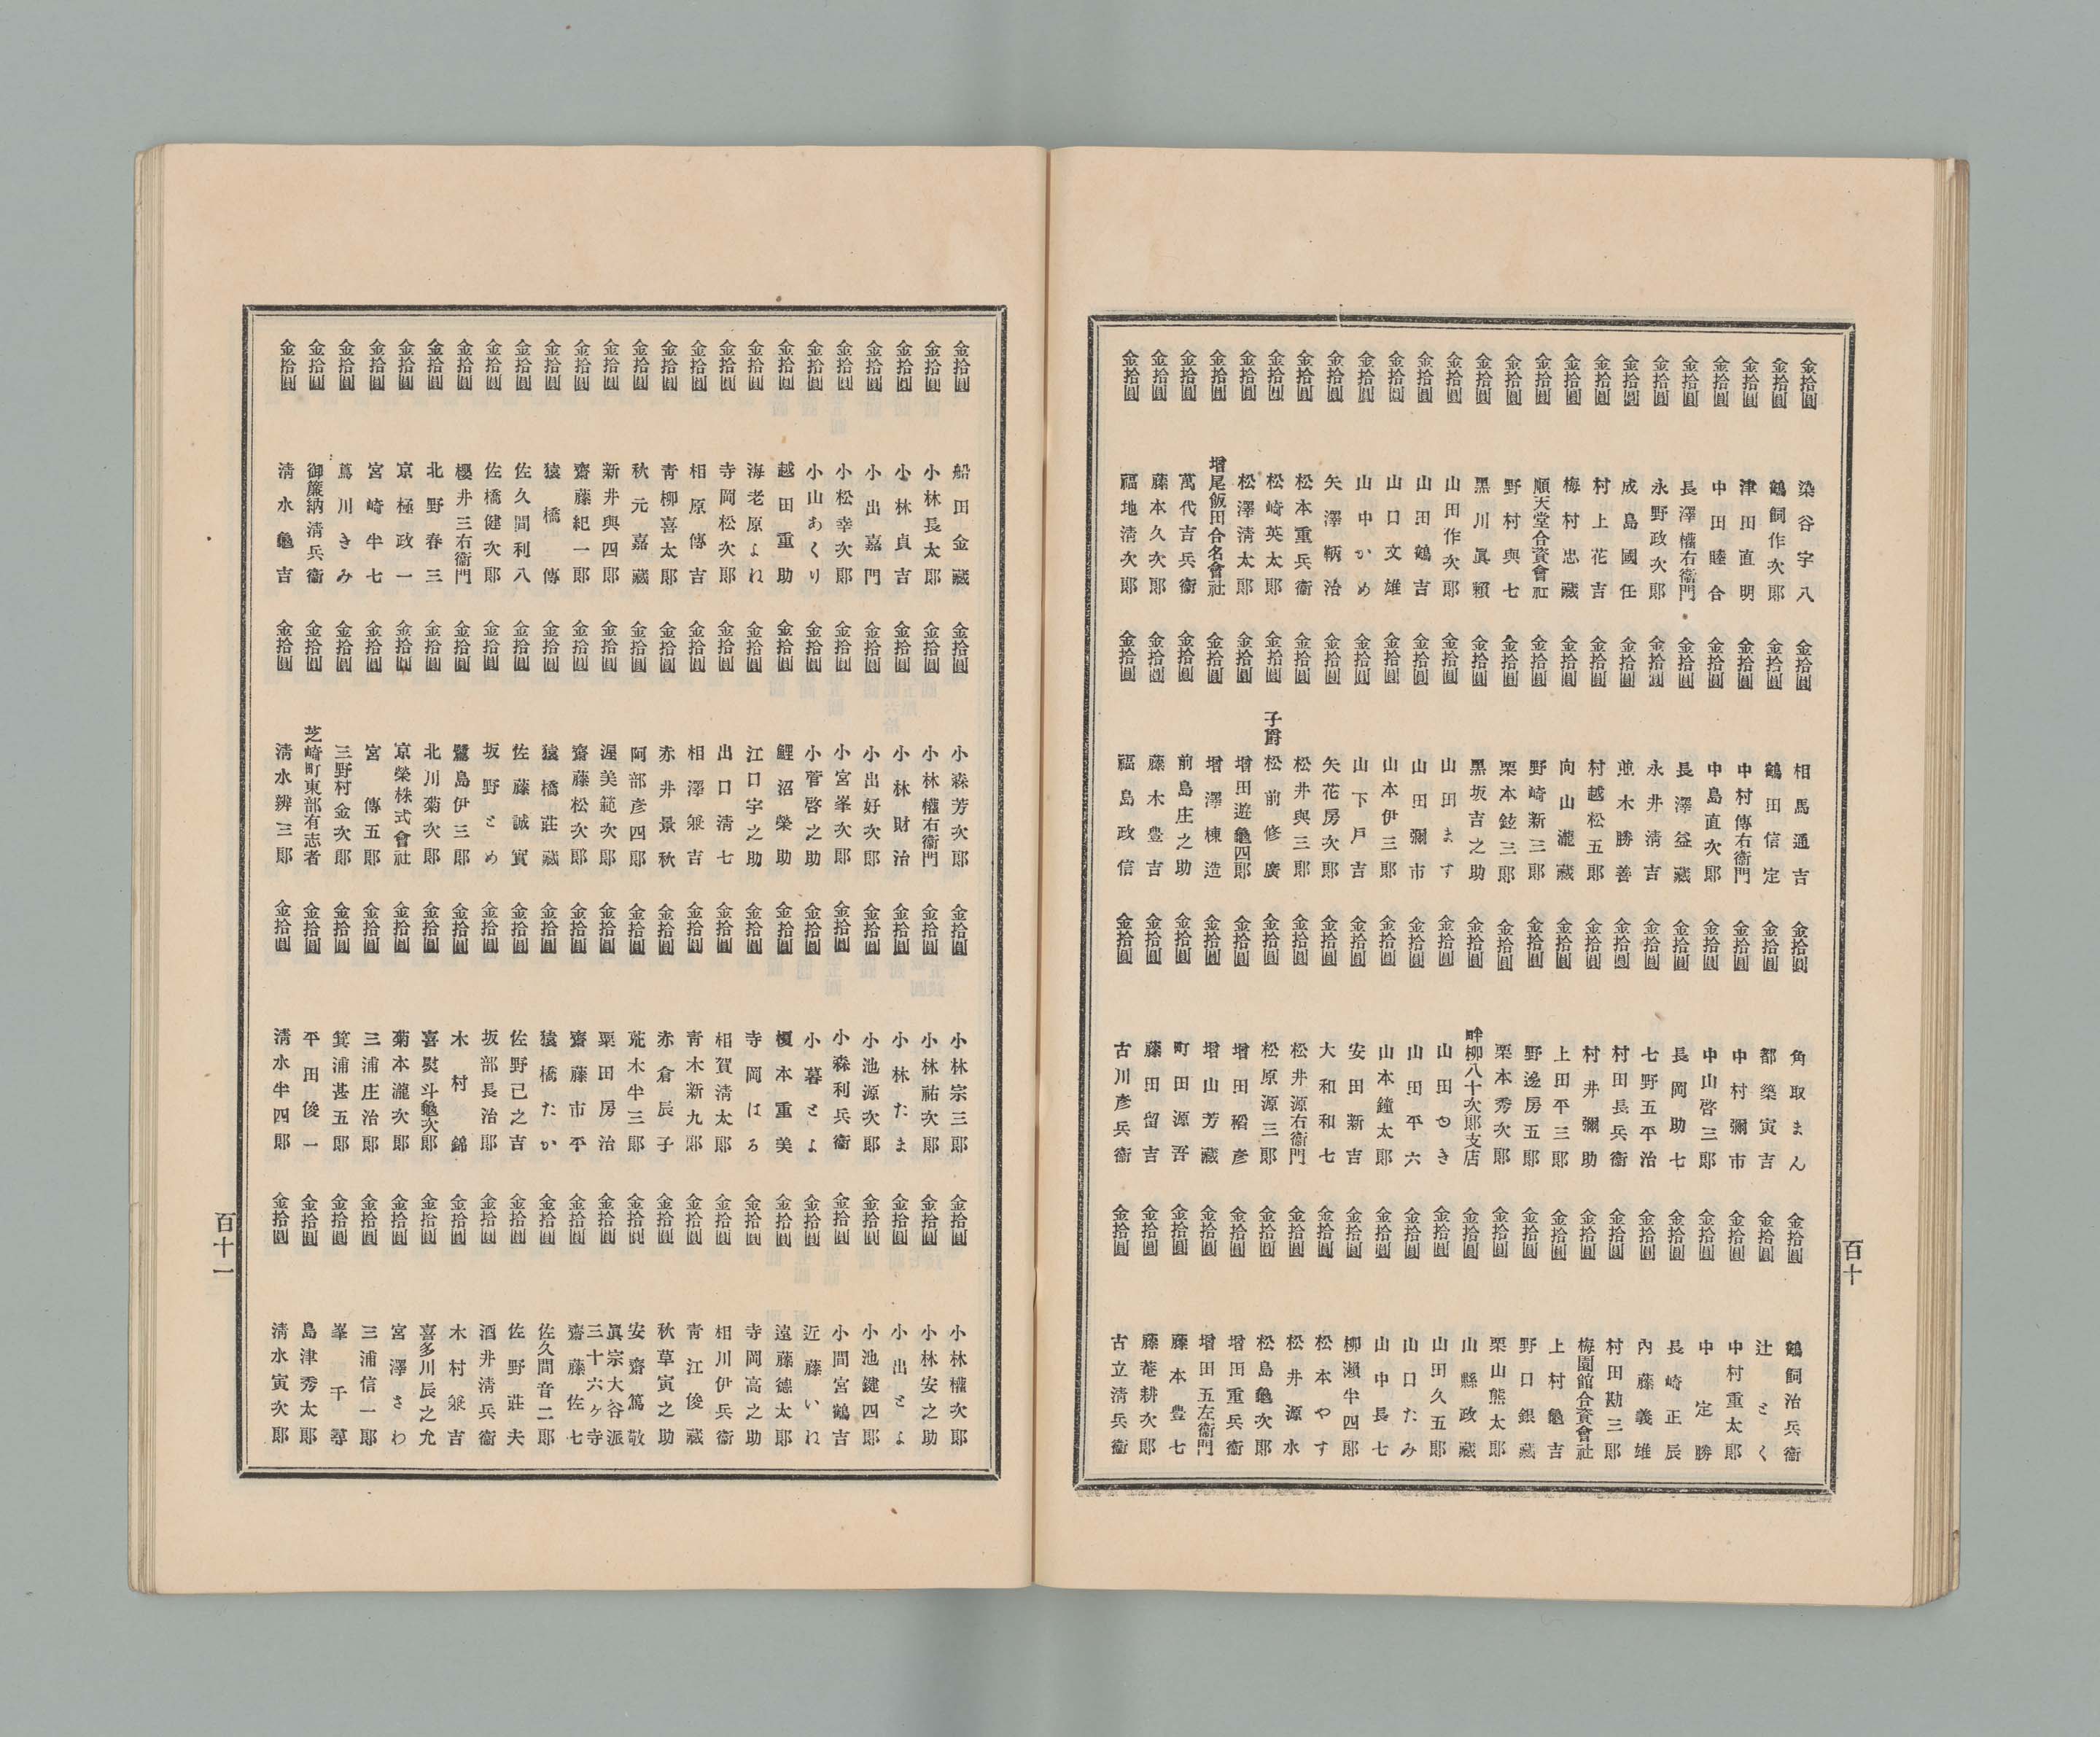 金拾圓 染谷宇八 金拾圓 相馬通吉 金拾圓 角取まん 金拾圓 鶴飼治兵衞
金拾圓 鶴飼作次郎 金拾圓 鶴田信定 金拾圓 都築寅吉 金拾圓 辻とく
金拾圓 津田直明 金拾圓 中村傳右衞門 金拾圓 中村彌市 金拾圓 中村重太郎
金拾圓 中田睦合 金拾圓 中島直次郎 金拾圓 中山啓三郎 金拾圓 中定勝
金拾圓 長澤權右衞門 金拾圓 長澤益藏 金拾圓 長岡助七 金拾圓 長崎正辰
金拾圓 永野政次郎 金拾圓 永井淸吉 金拾圓 七野五平治 金拾圓 內藤義雄
金拾圓 成島國任 金拾圓 並木勝善 金拾圓 村田長兵衞 金拾圓 村田勘三郎
金拾圓 村上花吉 金拾圓 村越松五郎 金拾圓 村井彌助 金拾圓 梅園館合資會社
金拾圓 梅村忠藏 金拾圓 向山瀧藏 金拾圓 上田平三郎 金拾圓 上村龜吉
金拾圓 順天堂合資會社 金拾圓 野崎新三郎 金拾圓 野邊房五郎 金拾圓 野口銀藏
金拾圓 野村與七 金拾圓 栗本鉉三郎 金拾圓 栗本秀次郎 金拾圓 栗山熊太郎
金拾圓 黑川眞賴 金拾圓 黑坂吉之助 金拾圓 畔柳八十次郎支店 金拾圓 山縣政藏
金拾圓 山田作次郎 金拾圓 山田ます 金拾圓 山田ゆき 金拾圓 山田久五郎
金拾圓 山田鶴吉 金拾圓 山田彌市 金拾圓 山田平六 金拾圓 山口たみ
金拾圓 山口文雄 金拾圓 山本伊三郎 金拾圓 山本鐘太郎 金拾圓 山中長七
金拾圓 山中かめ 金拾圓 山下戸吉 金拾圓 安田新吉 金拾圓 柳瀨半四郎
金拾圓 矢澤鞆治 金拾圓 矢花房次郎 金拾圓 大和和七 金拾圓 松本やす
金拾圓 松本重兵衞 金拾圓 松井與三郎 金拾圓 松井源右衞門 金拾圓 松井源水
金拾圓 松崎英太郎 金拾圓 子爵松前修廣 金拾圓 松原源三郎 金拾圓 松島龜次郎
金拾圓 松澤淸太郎 金拾圓 增田遊龜四郎 金拾圓 增田稻彥 金拾圓 增田重兵衞
金拾圓 增尾飯田合名會社 金拾圓 增澤棟造 金拾圓 增山芳藏 金拾圓 增田五左衞門
金拾圓 萬代吉兵衞 金拾圓 前島庄之助 金拾圓 町田源吾 金拾圓 藤本豊七
金拾圓 藤本久次郎 金拾圓 藤木豊吉 金拾圓 藤田留吉 金拾圓 藤卷耕次郎
金拾圓 福地淸次郎 金拾圓 福島政信 金拾圓 古川彥兵衞 金拾圓 古立淸兵衞
百十
金拾圓 船田金藏 金拾圓 小森芳次郎 金拾圓 小林宗三郎 金拾圓 小林權次郎
金拾圓 小林長太郎 金拾圓 小林權右衞門 金拾圓 小林祐次郎 金拾圓 小林安之助
金拾圓 小林貞吉 金拾圓 小林財治 金拾圓 小林たま 金拾圓 小出とよ
金拾圓 小出嘉門 金拾圓 小出好次郎 金拾圓 小池源次郎 金拾圓 小池鍵四郎
金拾圓 小松幸次郎 金拾圓 小宮峯次郎 金拾圓 小森利兵衞 金拾圓 小間宮鶴吉
金拾圓 小山あくり 金拾圓 小菅啓之助 金拾圓 小暮とよ 金拾圓 近藤いね
金拾圓 越田重助 金拾圓 鯉沼榮助 金拾圓 榎本重美 金拾圓 遠藤德太郎
金拾圓 海老原よね 金拾圓 江口宇之助 金拾圓 寺岡はる 金拾圓 寺岡高之助
金拾圓 寺岡松次郎 金拾圓 出口淸七 金拾圓 相賀淸太郎 金拾圓 相川伊兵衞
金拾圓 相原傳吉 金拾圓 相澤兼吉 金拾圓 靑木新九郎 金拾圓 靑江俊藏
金拾圓 靑柳喜太郎 金拾圓 赤井景秋 金拾圓 赤倉辰子 金拾圓 秋草寅之助
金拾圓 秋元嘉藏 金拾圓 阿部彥四郎 金拾圓 荒木半三郎 金拾圓 安齋篤敬
金拾圓 新井與四郎 金拾圓 渥美範次郎 金拾圓 粟田房治 金拾圓 眞宗大谷派三十六ケ寺
金拾圓 齋藤紀一郎 金拾圓 齋藤松次郎 金拾圓 齋藤市平 金拾圓 齋藤佐七
金拾圓 猿橋傳 金拾圓 猿橋莊藏 金拾圓 猿橋たか 金拾圓 佐久間音二郎
金拾圓 佐久間利八 金拾圓 佐藤誠實 金拾圓 佐野己之吉 金拾圓 佐野莊夫
金拾圓 佐橋健次郎 金拾圓 坂野とめ 金拾圓 坂部長治郎 金拾圓 酒井淸兵衞
金拾圓 櫻井三右衞門 金拾圓 鷺島伊三郎 金拾圓 木村錦 金拾圓 木村兼吉
金拾圓 北野春三 金拾圓 北川菊次郎 金拾圓 喜熨斗龜次郎 金拾圓 喜多川辰之允
金拾圓 京極政一 金拾圓 京榮株式會社 金拾圓 菊本瀧次郎 金拾圓 宮澤さわ
金拾圓 宮崎半七 金拾圓 宮傳五郎 金拾圓 三浦庄治郎 金拾圓 三浦信一郎
金拾圓 蔦川きみ 金拾圓 三野村金次郎 金拾圓 箕浦甚五郎 金拾圓 峯千尋
金拾圓 御簾納淸兵衞 金拾圓 芝崎町東部有志者 金拾圓 平田俊一 金拾圓 島津秀太郎
金拾圓 淸水龜吉 金拾圓 淸水辨三郎 金拾圓 淸水半四郎 金拾圓 淸水寅次郎
百十一